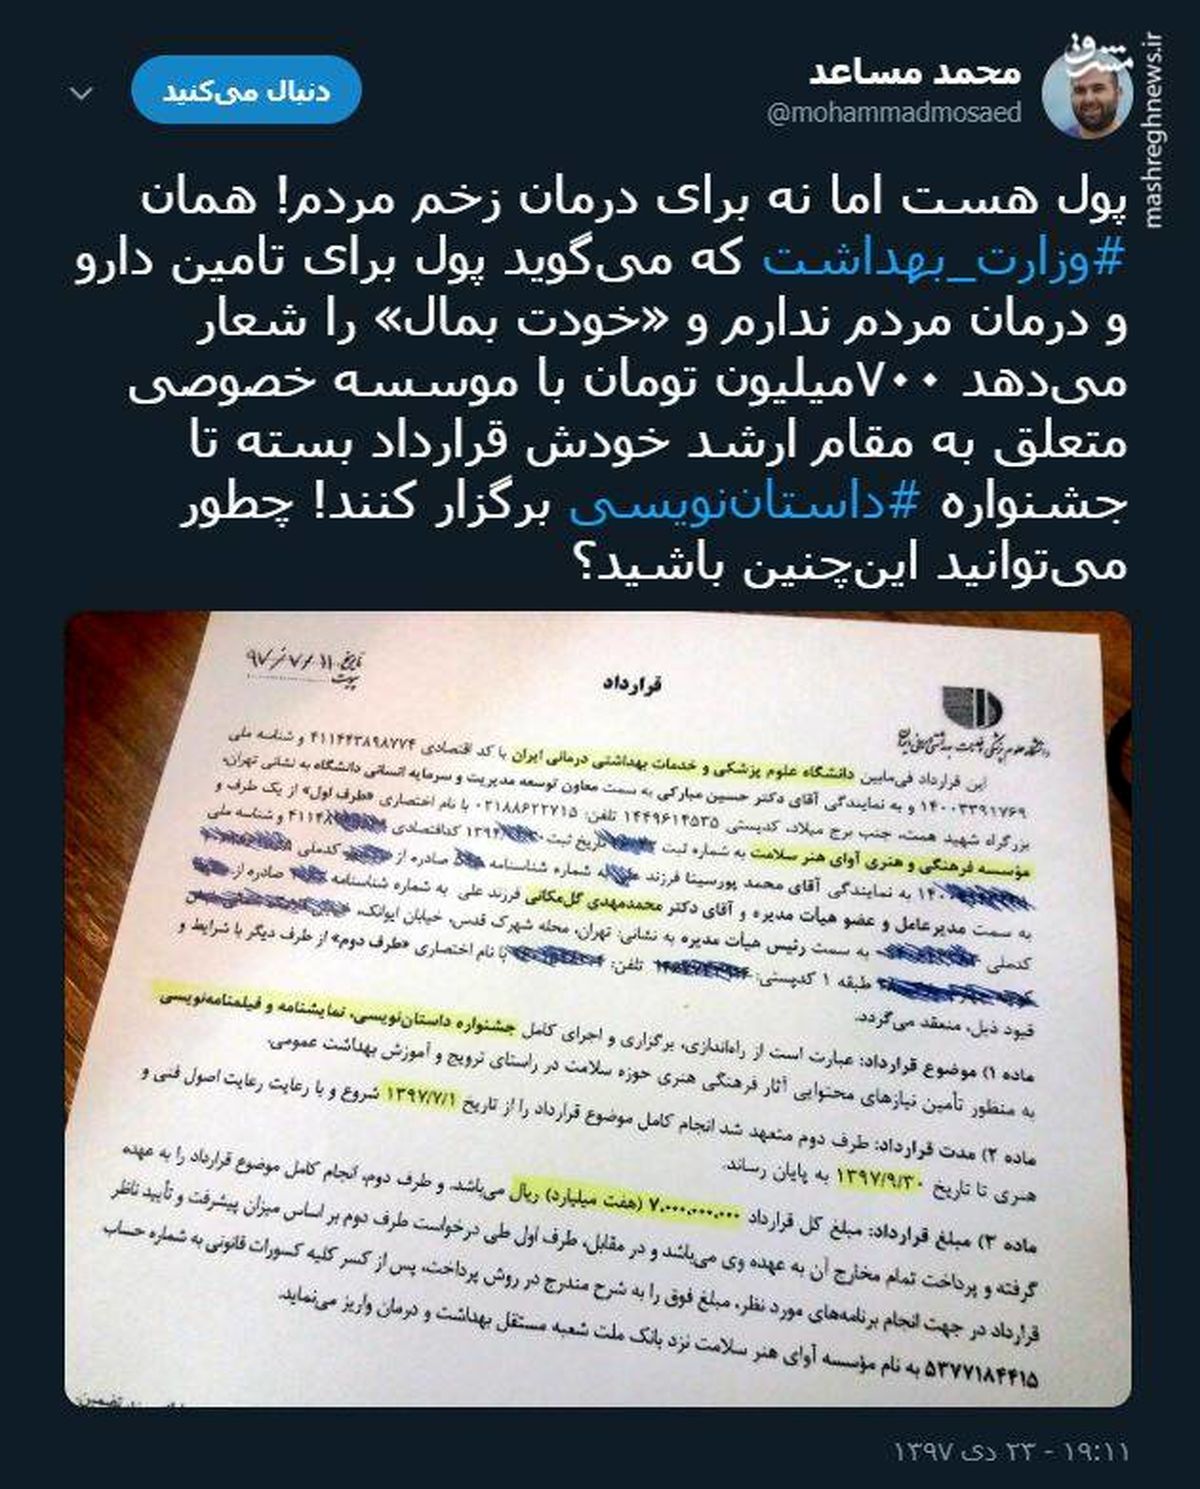 محمد مساعد
@mohammadmosaed
دنبال می‌کنید
مشرق
mashreghnews.ir
پول هست اما نه برای درمان زخم مردم! همان
#وزارت_بهداشت که می‌گوید پول برای تامین دارو
و درمان مردم ندارم و «خودت بمال» را شعار
می‌دهد ۷۰۰میلیون تومان با موسسه خصوصی
متعلق به مقام ارشد خودش قرارداد بسته تا
جشنواره #داستان‌نویسی برگزار کنند! چطور
می‌توانید این‌چنین باشید؟
تاریخ ۹۷/۷/۱۱
پیوست
قرارداد
دانشگاه علوم پزشکی و خدمات بهداشتی درمانی ایران
این قرارداد فی‌مابین دانشگاه علوم پزشکی و خدمات بهداشتی درمانی ایران با کد اقتصادی ۴۱۱۴۴۳۸۹۸۷۷۴ و شناسه ملی
۱۴۰۰۳۳۹۱۷۶۹ و به نمایندگی آقای دکتر حسین مبارکی به سمت معاون توسعه مدیریت و سرمایه انسانی دانشگاه به نشانی تهران،
بزرگراه شهید همت، جنب برج میلاد، کدپستی ۱۴۴۹۶۱۴۵۳۵ تلفن: ۰۲۱۸۸۶۲۲۷۱۵ با نام اختصاری «طرف اول» از یک طرف و
مؤسسه فرهنگی و هنری آوای هنر سلامت به شماره ثبت تاریخ ثبت ۱۳۹۴/ کداقتصادی ۴۱۱۴۸ و شناسه ملی
۱۴۰ به نمایندگی آقای محمد پورسینا فرزند به شماره شناسنامه صادره از کدملی
به سمت مدیرعامل و عضو هیأت مدیره و آقای دکتر محمدمهدی گل‌مکانی فرزند علی به شماره شناسنامه صادره از
کدملی به سمت رئیس هیأت مدیره به نشانی: تهران، محله شهرک قدس، خیابان ایوانک،
طبقه ۱ کدپستی: تلفن: با نام اختصاری «طرف دوم» از طرف دیگر با شرایط و
قیود ذیل، منعقد می‌گردد.
ماده ۱) موضوع قرارداد: عبارت است از راه‌اندازی، برگزاری و اجرای کامل جشنواره داستان‌نویسی، نمایشنامه و فیلمنامه‌نویسی
به منظور تأمین نیازهای محتوایی آثار فرهنگی هنری حوزه سلامت در راستای ترویج و آموزش بهداشت عمومی.
ماده ۲) مدت قرارداد: طرف دوم متعهد شد انجام کامل موضوع قرارداد را از تاریخ ۱۳۹۷/۷/۱ شروع و با رعایت رعایت اصول فنی و
هنری تا تاریخ ۱۳۹۷/۹/۳۰ به پایان رساند.
ماده ۳) مبلغ قرارداد: مبلغ کل قرارداد ۷.۰۰۰.۰۰۰.۰۰۰ (هفت میلیارد) ریال می‌باشد. و طرف دوم، انجام کامل موضوع قرارداد را به عهده
گرفته و پرداخت تمام مخارج آن به عهده وی می‌باشد و در مقابل، طرف اول طی درخواست طرف دوم بر اساس میزان پیشرفت و تأیید ناظر
قرارداد در جهت انجام برنامه‌های مورد نظر، مبلغ فوق را به شرح مندرج در روش پرداخت، پس از کسر کلیه کسورات قانونی به شماره حساب
۵۳۷۷۱۸۴۴۱۵ به نام مؤسسه آوای هنر سلامت نزد بانک ملت شعبه مستقل بهداشت و درمان واریز می‌نماید.
۱۹:۱۱ - ۲۳ دی ۱۳۹۷